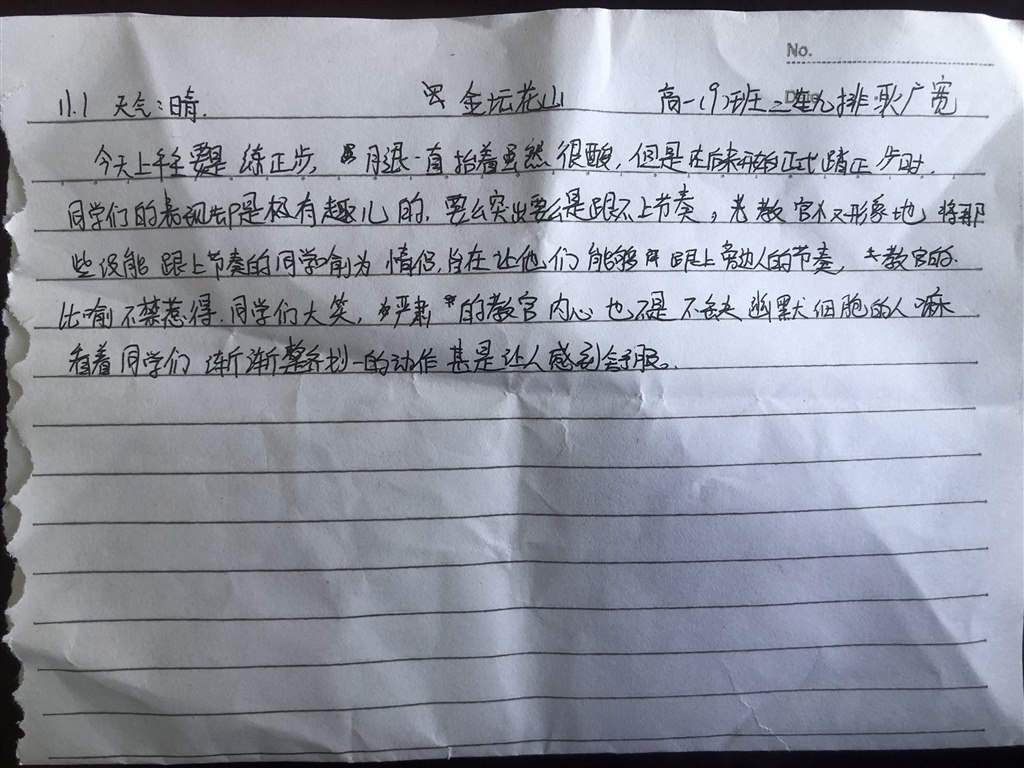 No.
11.1 天气:晴. 金坛花山 高一(9)班二连九排 耿广宽
今天上午主要是练正步,腿一直抬着虽然很酸,但是在后来开始正式踏正步时,
同学们的表现却是极有趣儿的.要么突出要么是跟不上节奏,教官又形象地将那
些没能跟上节奏的同学喻为情侣,旨在让他们能够跟上旁人的节奏,教官的
比喻不禁惹得同学们大笑,严肃的教官内心也不是不缺幽默细胞的人嘛
看着同学们渐渐整齐划一的动作甚是让人感到舒服。